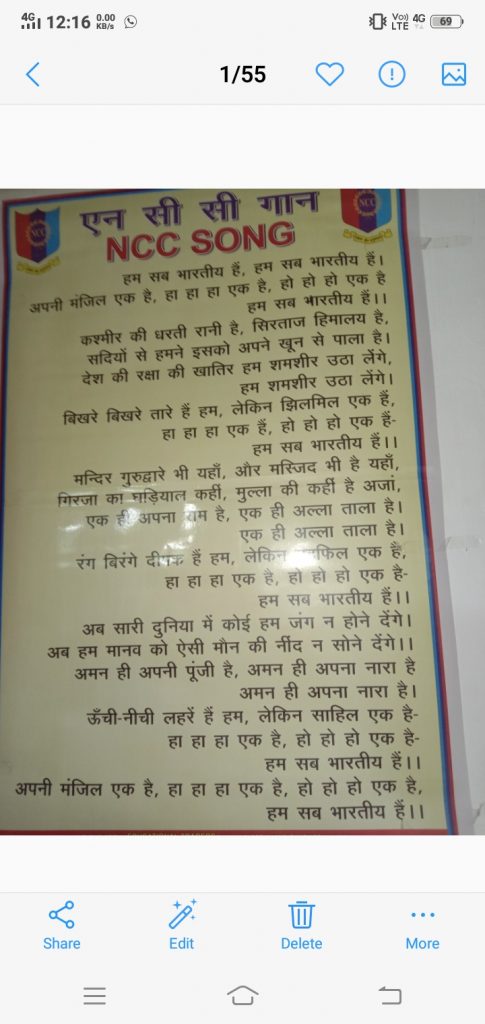 4G 12:16 0.00 KB/s Vo)) LTE 4G 69
1/55
एन सी सी गान
NCC SONG
NCC
NCC
हम सब भारतीय हैं, हम सब भारतीय हैं।
अपनी मंजिल एक है, हा हा हा एक है, हो हो हो एक है
हम सब भारतीय हैं।।
कश्मीर की धरती रानी है, सिरताज हिमालय है,
सदियों से हमने इसको अपने खून से पाला है।
देश की रक्षा की खातिर हम शमशीर उठा लेंगे,
हम शमशीर उठा लेंगे।
बिखरे बिखरे तारे हैं हम, लेकिन झिलमिल एक है,
हा हा हा एक हैं, हो हो हो एक हैं-
हम सब भारतीय हैं।।
मन्दिर गुरुद्वारे भी यहाँ, और मस्जिद भी है यहाँ,
गिरजा का घड़ियाल कहीं, मुल्ला की कहीं है अजां,
एक ही अपना राम है, एक ही अल्ला ताला है।
एक ही अल्ला ताला है।
रंग बिरंगे दीपक हैं हम, लेकिन एक है,
हा हा हा एक है, हो हो हो एक है-
हम सब भारतीय हैं।।
अब सारी दुनिया में कोई हम जंग न होने देंगे।
अब हम मानव को ऐसी मौन की नींद न सोने देंगे।।
अमन ही अपनी पूंजी है, अमन ही अपना नारा है
अमन ही अपना नारा है।
ऊँची-नीची लहरें हैं हम, लेकिन साहिल एक है-
हा हा हा एक है, हो हो हो एक है-
हम सब भारतीय हैं।।
अपनी मंजिल एक है, हा हा हा एक है, हो हो हो एक है,
हम सब भारतीय हैं।।
Share Edit Delete More